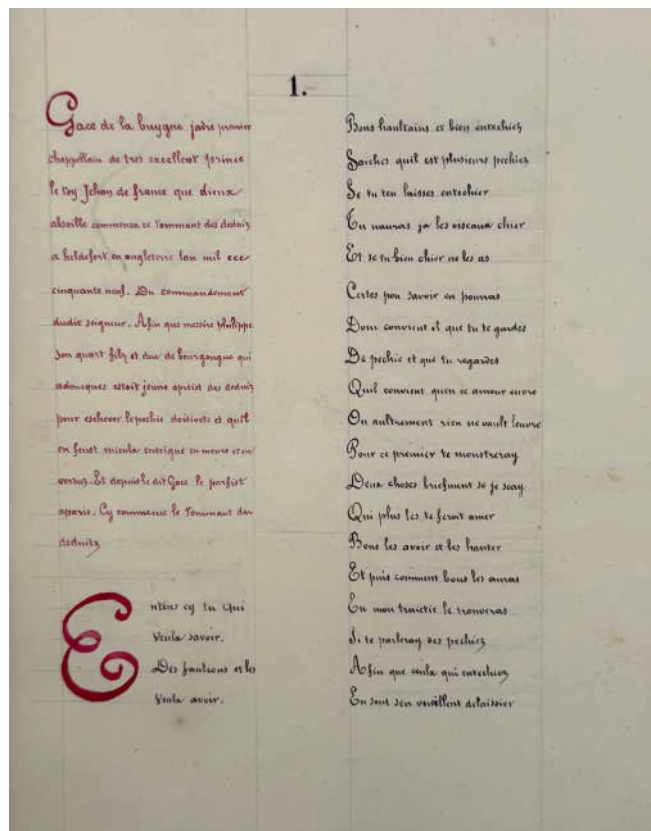 1.
Gace de la buygne jadis premier
chappellain de tres excellent prince
le roy Jehan de france que dieux
absoille commenca ce Rommant des deduiz
a heldefort en angleterre lan mil ccc
cinquante neuf. Du commandement
dudit seigneur. Afin que messire philippe
son quart filz et duc de bourgongue qui
adoncques estoit jeune aprist des deduiz
pour eschever le pechie doisivete et quil
en feust mieulx enseigne en meurs et en
vertuz. Et depuis le dit Gace le parfist
aparis. Cy commence le Rommant des
deduitz
Entens cy tu Qui
Veulx savoir.
Des faulcons et les
Veulx avoir.
Bons haultains et bien entechiez
Saiches quil est plusieurs pechiez
Se tu ten laisses entechier
Tu nauras ja les oiseaux chier
Et se tu bien chier ne les as
Certes pou savoir en pourras
Donc convient il que tu te gardes
De pechie et que tu regardes
Quil convient quen ce amour euvre
Ou aultrement rien ne vault leuvre
Pour ce premier te monstreray
Deux choses briefment se je scay
Qui plus les te feroit amer
Bons les avoir et les hanter
Et puis comment bons les auras
En mon traictie le trouveras
Si te parleray des pechiez
Afin que ceulx qui entechiez
En sont sen veuillent delaissier